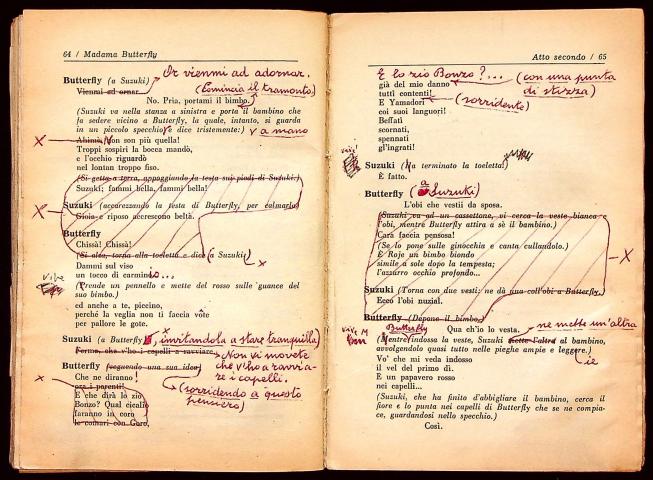 64 / Madama Butterfly
Butterfly (a Suzuki)
Or vienmi ad adornar.
Vienmi ad ornar
(Comincia il tramonto.)
No. Pria, portami il bimbo.
(Suzuki va nella stanza a sinistra e porta il bambino che
fa sedere vicino a Butterfly, la quale, intanto, si guarda
in un piccolo specchio e dice tristemente:)
a mano
X
Ahimè, Non son più quella!
Troppi sospiri la bocca mandò,
e l'occhio riguardò
nel lontan troppo fiso.
(Si getta a terra, appoggiando la testa sui piedi di Suzuki.)
Suzuki; fammi bella, fammi bella!
X
Suzuki (accarezzando la testa di Butterfly, per calmarla)
Gioia e riposo accrescono beltà.
Butterfly
Chissà! Chissà!
(Si alza, torna alla toeletta e dice a Suzuki:)
X
Dammi sul viso
un tocco di carminio...
(Prende un pennello e mette del rosso sulle guance del
suo bimbo.)
ed anche a te, piccino,
perché la veglia non ti faccia vôte
per pallore le gote.
Suzuki (a Butterfly, invitandola a stare tranquilla)
Ferma, che v'ho i capelli a ravviare.
Non vi movete
che v'ho a ravvia-
re i capelli.
Butterfly (seguendo una sua idea)
(sorridendo a questo
pensiero)
X
Che ne diranno!
ora i parenti!
E che dirà lo zio
Bonzo? Qual cicalio
faranno in coro
le comari con Goro,
Atto secondo / 65
E lo zio Bonzo?...
(con una punta
di stizza)
già del mio danno
tutti contenti!
E Yamadori
(sorridente)
coi suoi languori!
Beffati
scornati,
spennati
gl'ingrati!
Suzuki (Ha terminato la toeletta)
È fatto.
Butterfly (a Suzuki)
L'obi che vestii da sposa.
(Suzuki va ad un cassettone, vi cerca la veste bianca e
l'obi, mentre Butterfly attira a sè il bambino.)
Cara faccia pensosa!
(Se lo pone sulle ginocchia e canta cullandolo.)
È Roje un bimbo biondo
simile a sole dopo la tempesta;
l'azzurro occhio profondo...
X
Suzuki (Torna con due vesti; ne dà una coll'obi a Butterfly.)
Ecco l'obi nuzial.
Butterfly (Depone il bimbo)
Butterfly
Qua ch'io lo vesta.
ne mette un'altra
(Mentre indossa la veste, Suzuki mette l'altra al bambino,
avvolgendolo quasi tutto nelle pieghe ampie e leggere.)
Vo' che mi veda indosso
il vel del primo dì.
E un papavero rosso
nei capelli...
(Suzuki, che ha finito d'abbigliare il bambino, cerca il
fiore e lo punta nei capelli di Butterfly che se ne compia-
ce, guardandosi nello specchio.)
Così.